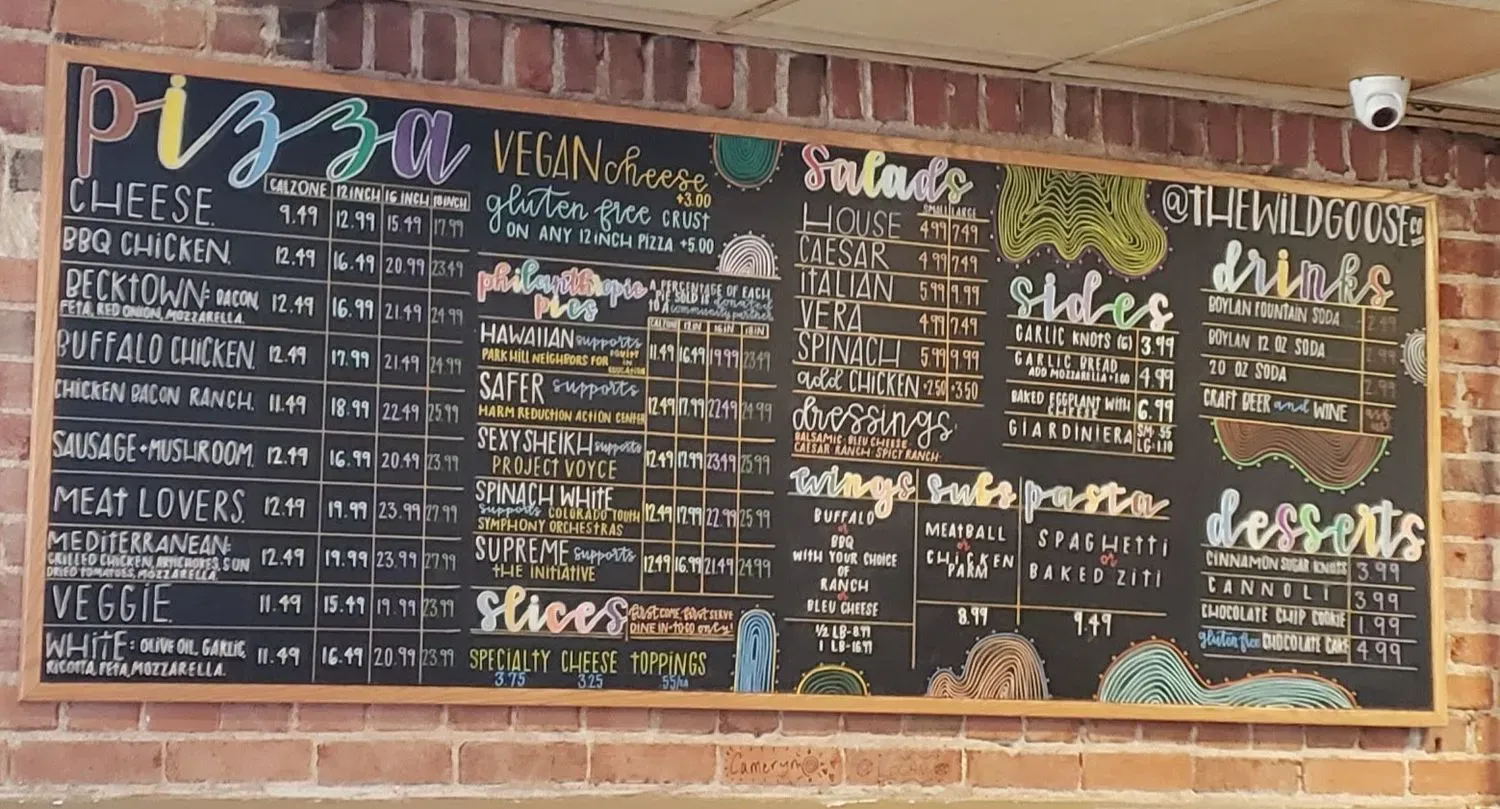 pizza
CALZONE 12 INCH 16 INCH 18 INCH
CHEESE. 9.49 12.99 15.49 17.99
BBQ CHICKEN. 12.49 16.49 20.99 23.49
BECKTOWN: BACON, 12.49 16.99 21.49 24.99
FETA, RED ONION, MOZZARELLA.
BUFFALO CHICKEN. 12.49 17.99 21.49 24.99
CHICKEN BACON RANCH. 11.49 18.99 22.49 25.99
SAUSAGE + MUSHROOM. 12.49 16.99 20.49 23.99
MEAT LOVERS. 12.49 19.99 23.99 27.99
MEDITERRANEAN: 12.49 19.99 23.99 27.99
GRILLED CHICKEN, ARTICHOKES, SUN
DRIED TOMATOES, MOZZARELLA.
VEGGIE. 11.49 15.49 19.99 23.99
WHITE: OLIVE OIL, GARLIC, 11.49 16.49 20.99 23.99
RICOTTA, FETA, MOZZARELLA.
VEGAN cheese
+3.00
gluten free CRUST
ON ANY 12 INCH PIZZA +5.00
philanthropic
pies
A PERCENTAGE OF EACH
PIE SOLD IS donated
TO A community partner
CALZONE 12 IN 16 IN 18 IN
HAWAIIAN supports 11.49 16.49 19.99 23.49
PARK HILL NEIGHBORS FOR EQUITY
IN
EDUCATION
SAFER supports 12.49 17.99 22.49 24.99
HARM REDUCTION ACTION CENTER
SEXY SHEIKH supports 12.49 17.99 23.49 25.99
PROJECT VOYCE
SPINACH WHITE 12.49 17.99 22.99 25.99
supports COLORADO YOUTH
SYMPHONY ORCHESTRAS
SUPREME supports 12.49 16.99 21.49 24.99
THE INITIATIVE
slices
FIRST COME, FIRST SERVE
DINE IN-TO GO only!
SPECIALTY CHEESE TOPPINGS
3.75 3.25 .55/EA
salads
SMALL LARGE
HOUSE 4.99 7.49
CAESAR 4.99 7.49
ITALIAN 5.99 9.99
VERA 4.99 7.49
SPINACH 5.99 9.99
add CHICKEN +2.50 +3.50
dressings
BALSAMIC, BLEU CHEESE,
CAESAR, RANCH, SPICY RANCH.
wings
BUFFALO
or
BBQ
WITH YOUR CHOICE
OF
RANCH
or
BLEU CHEESE
1/2 LB-8.99
1 LB-16.99
subs
MEATBALL
or
CHICKEN
PARM
8.99
pasta
SPAGHETTI
or
BAKED ZITI
9.49
sides
GARLIC KNOTS (6) 3.99
GARLIC BREAD 4.99
ADD MOZZARELLA +1.00
BAKED EGGPLANT WITH 6.99
CHEESE
GIARDINIERA SM-.55
LG-1.10
@THEWILDGOOSECO
drinks
BOYLAN FOUNTAIN SODA 2.49
BOYLAN 12 OZ SODA 2.99
20 OZ SODA 2.99
CRAFT BEER and WINE ask us!
desserts
CINNAMON SUGAR KNOTS 3.99
CANNOLI 3.99
CHOCOLATE CHIP COOKIE 1.99
gluten free CHOCOLATE CAKE 4.99
Cameryn